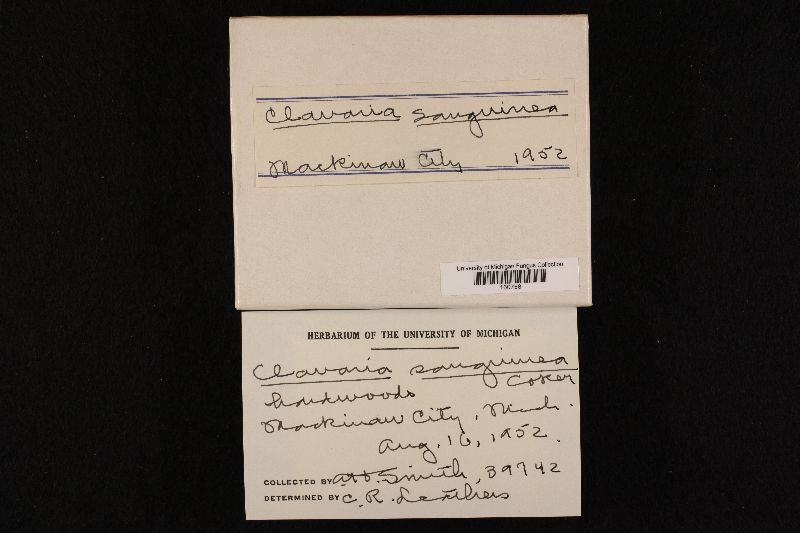 Clavaria sanguinea
Mackinaw City 1952
University of Michigan Fungus Collection
HERBARIUM OF THE UNIVERSITY OF MICHIGAN
Clavaria sanguinea
Coker
hardwoods
Mackinaw City, Mich.
Aug. 16, 1952.
COLLECTED BY A.H. Smith, 39742
DETERMINED BY C. R. Leathers